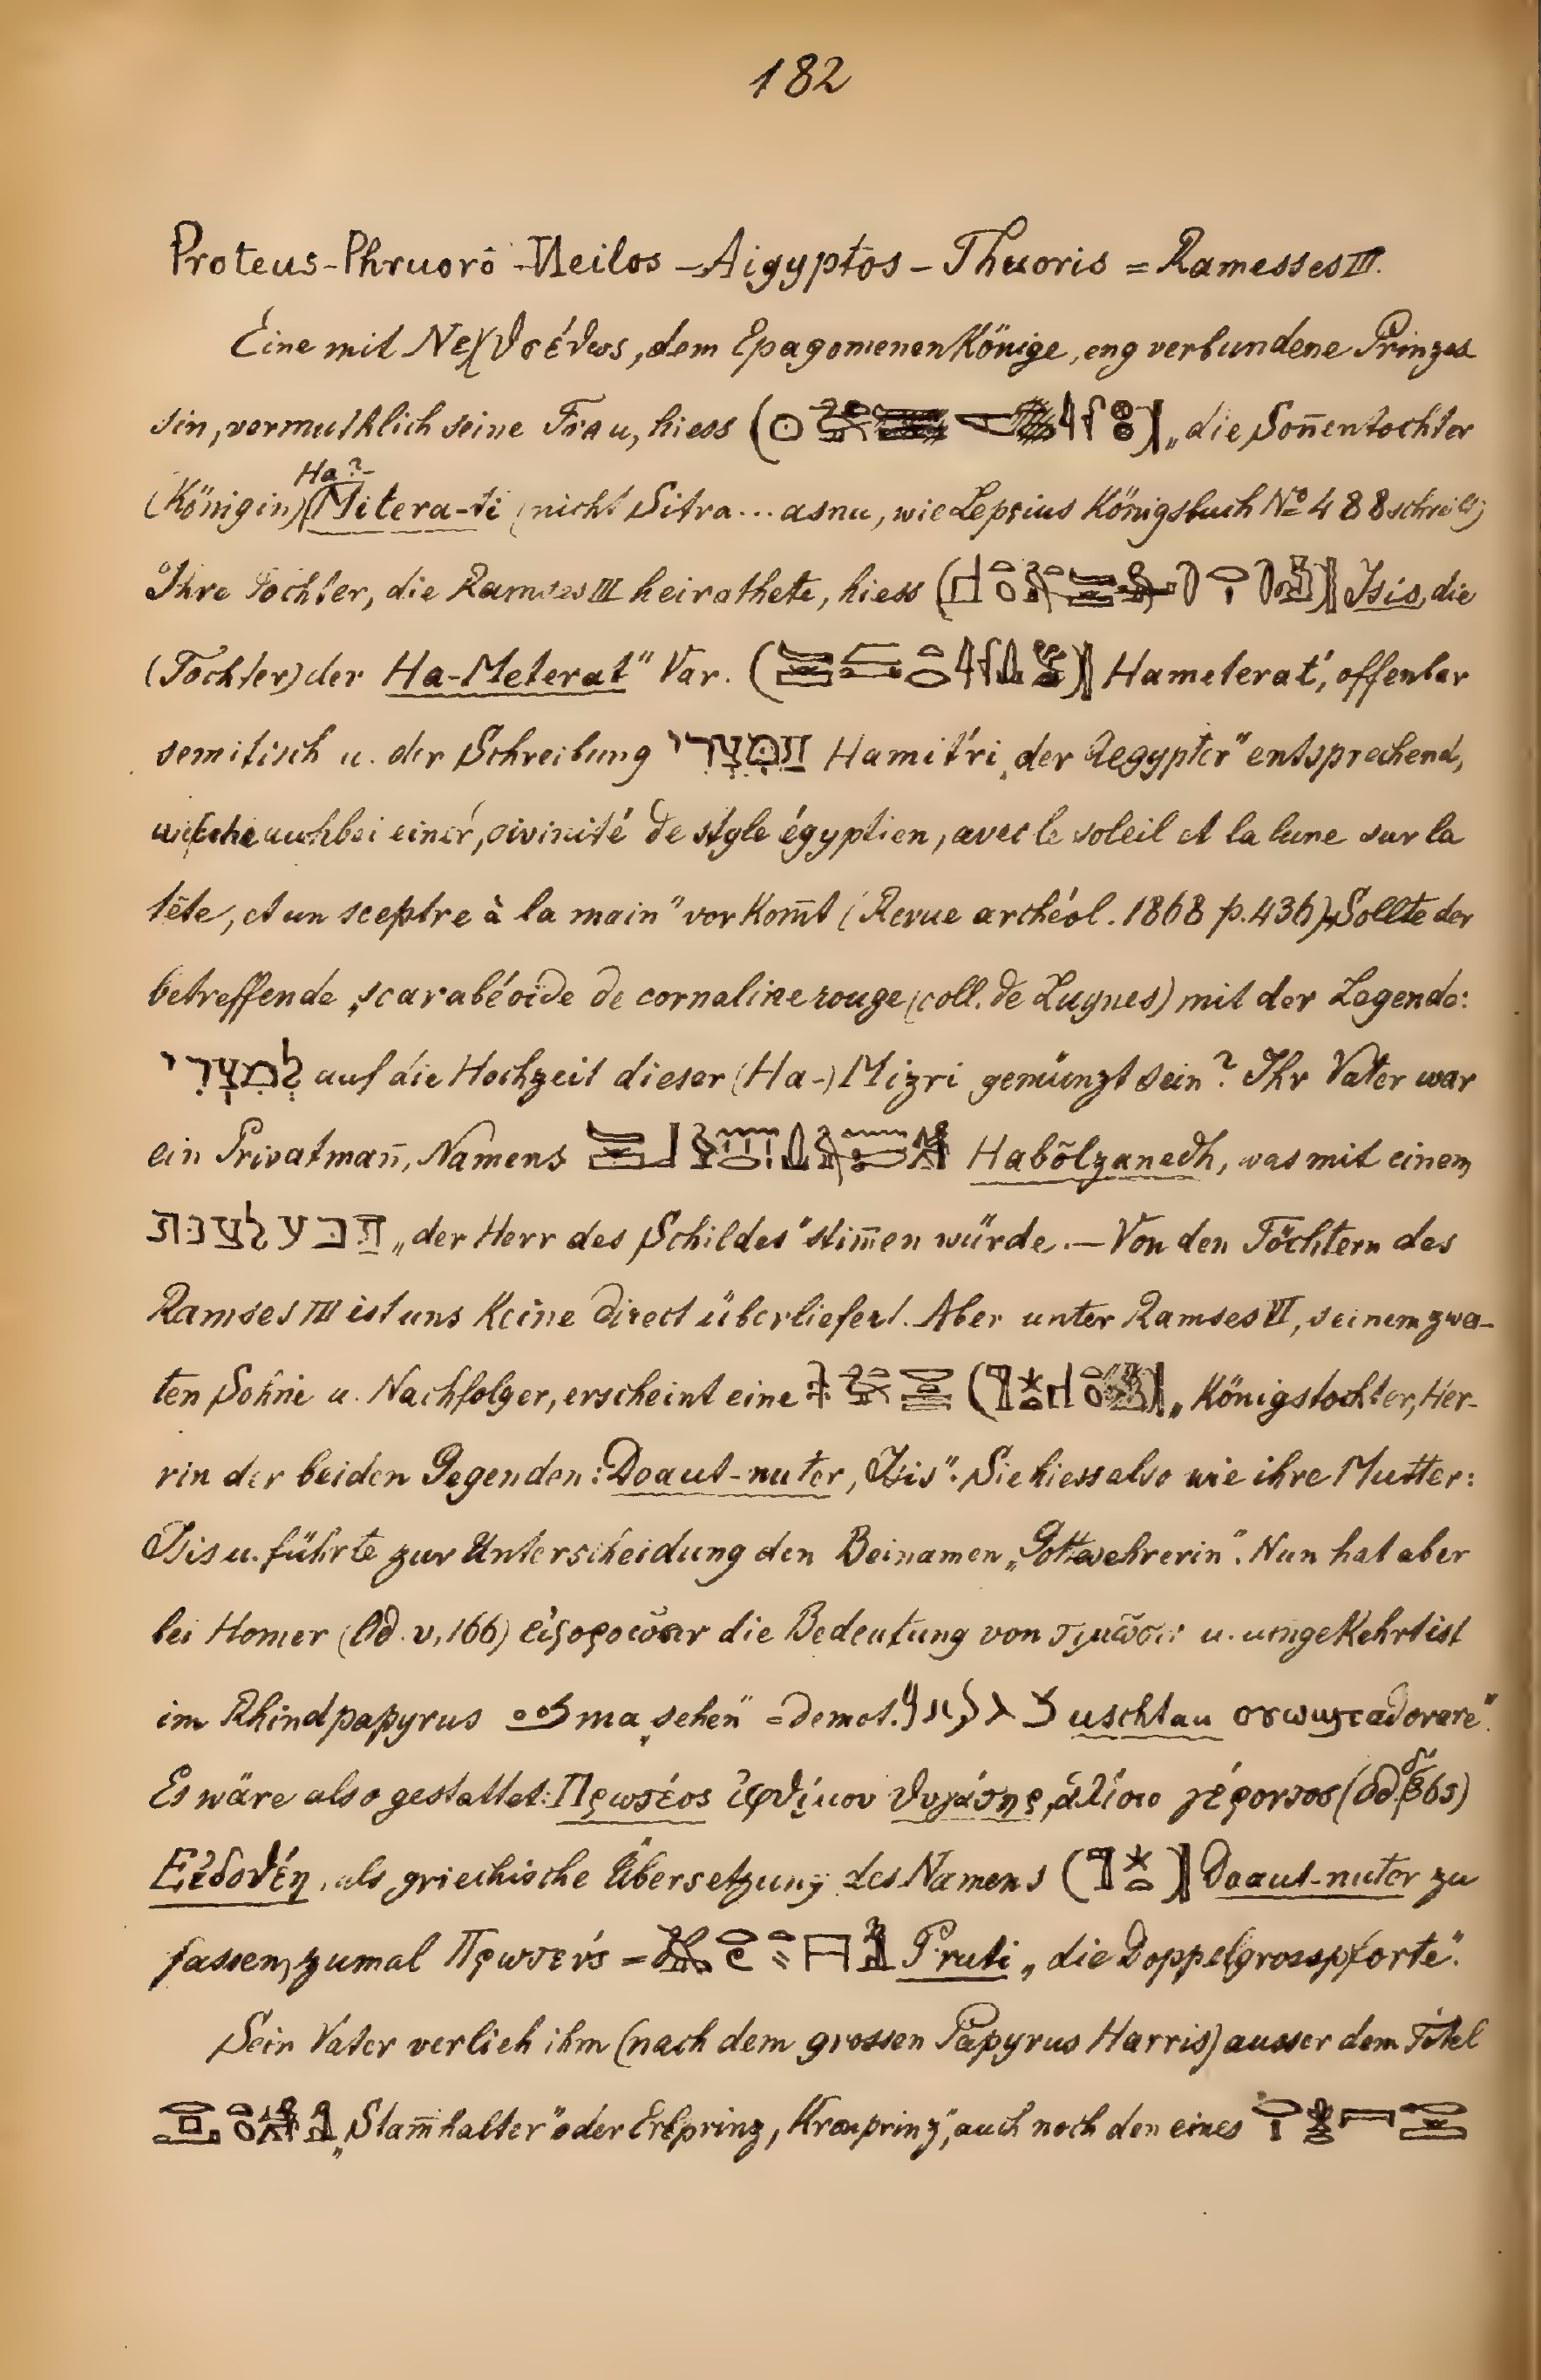 182
Proteus-Phruorô-Neilos-Aigyptos-Thuoris = Ramesses III.
Eine mit Νεχθσένως, dem Epagomenen Könige, eng verbundene Prinzes
sin, vermuthlich seine Frau, hiess „die Soñentochter
Ha?
(Königin) Mitera-ti (nicht Sitra... asnu, wie Lepsius Königsbuch No 488 schreibt)
Ihre Tochter, die Ramses III heirathete, hiess Isis, die
(Tochter) der Ha-Meterat" Var. Hameterat', offenbar
semitisch u. der Schreibung המצרי Hamit'ri „der Aegypter" entsprechend,
welche auch bei einer „divinité de style égyptien, avec le soleil et la lune sur la
tête, et un sceptre à la main" vorkom̄t (Revue archéol. 1868 p. 436). Sollte der
betreffende „scarabéoïde de cornaline rouge (coll. de Luynes) mit der Legende:
לְמִצְרִי auf die Hochzeit dieser (Ha-) Mizri gemünzt sein? Ihr Vater war
ein Privatman̄, Namens Habõlzanedh, was mit einem
הבעלצנת „der Herr des Schildes" stim̄en würde. — Von den Töchtern des
Ramses III ist uns keine direct überliefert. Aber unter Ramses VI, seinem zwei-
ten Sohne u. Nachfolger, erscheint eine „Königstochter, Her-
rin der beiden Gegenden: Doaut-nuter, Isis". Sie hiess also wie ihre Mutter:
Isis u. führte zur Unterscheidung den Beinamen „Gottverehrerin". Nun hat aber
bei Homer (Od. v, 166) die Bedeutung von u. umgekehrt ist
im Rhindpapyrus ma „sehen" = demot. uschtau ⲟⲩⲱϣⲧ adorare".
Es wäre also gestattet: Πρωτέος ἰφθίμου θυγάτηρ, ἁλίοιο γέροντος (Od. δ 365)
Εἰδοθέη, als griechische Übersetzung des Namens Doaut-nuter zu
fassen, zumal Πρωτεύς = Pruti „die Doppelgrosspforte".
Sein Vater verlieh ihm (nach dem grossen Papyrus Harris) ausser dem Titel
„Stam̄halter" oder Erbprinz, Kronprinz", auch noch den eines